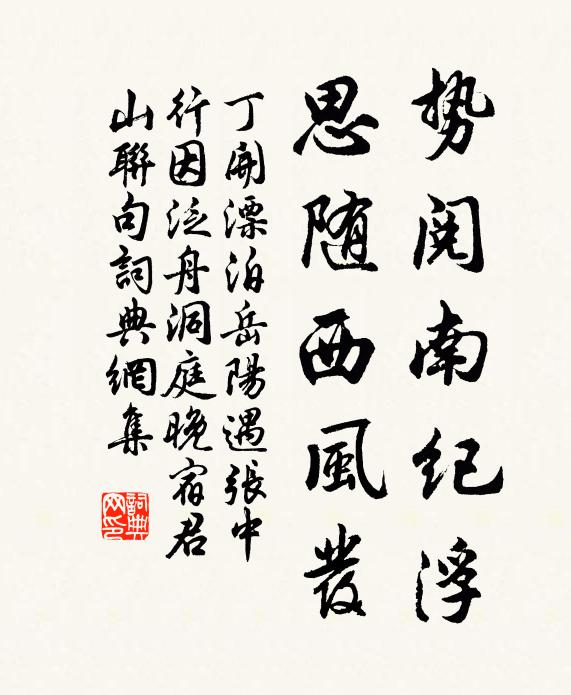 势阅南纪浮
思随西风发
丁開漂泊岳陽遇張中
行因泛舟洞庭晚宿君
山聯句詞典網集
詞典
网印